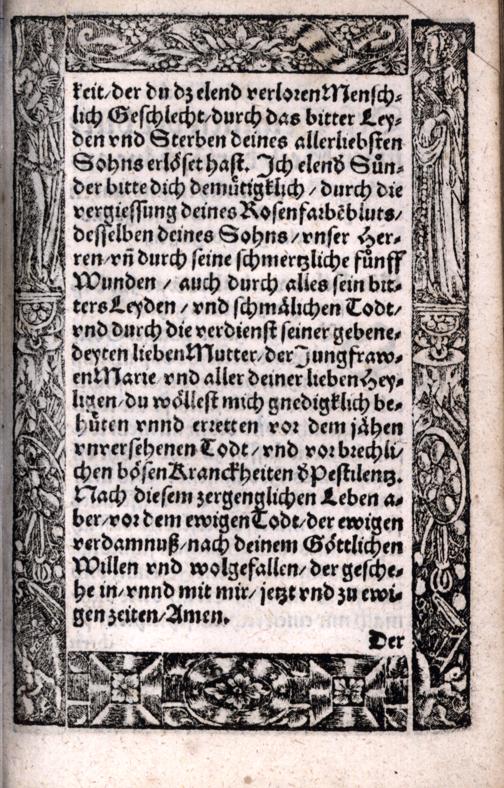 keit/der du dz elend verloren Mensch⸗
lich Geschlecht/durch das bitter Ley⸗
den vnd Sterben deines allerliebsten
Sohns erlöset hast. Ich elend Sün⸗
der bitte dich demütigklich/durch die
vergiessung deines Rosenfarbē bluts/
desselben deines Sohns/vnser Her⸗
ren/vñ durch seine schmertzliche fünff
Wunden/auch durch alles sein bit⸗
ters Leyden/vnd schmälichen Todt/
vnd durch die verdienst seiner gebene⸗
deyten lieben Mutter/der Jungfraw⸗
en Marie/vnd aller deiner lieben Hey⸗
ligen/du wöllest mich gnedigklich be⸗
hüten vnnd erretten vor dem jähen
vnversehenen Todt/vnd vor brechli⸗
chen bösen Kranckheiten d Pestilentz.
Nach diesem zergenglichen Leben a⸗
ber/vor dem ewigen Todt/der ewigen
verdamnuß/nach deinem Göttlichen
Willen vnd wolgefallen/der gesche⸗
he in/vnnd mit mir/jetzt vnd zu ewi⸗
gen zeiten/Amen.
Der